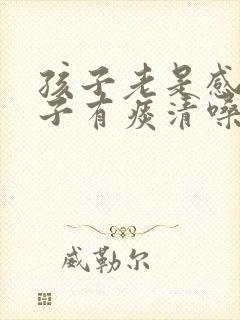 孩子老是感
子有痰清嗓
威勒尔